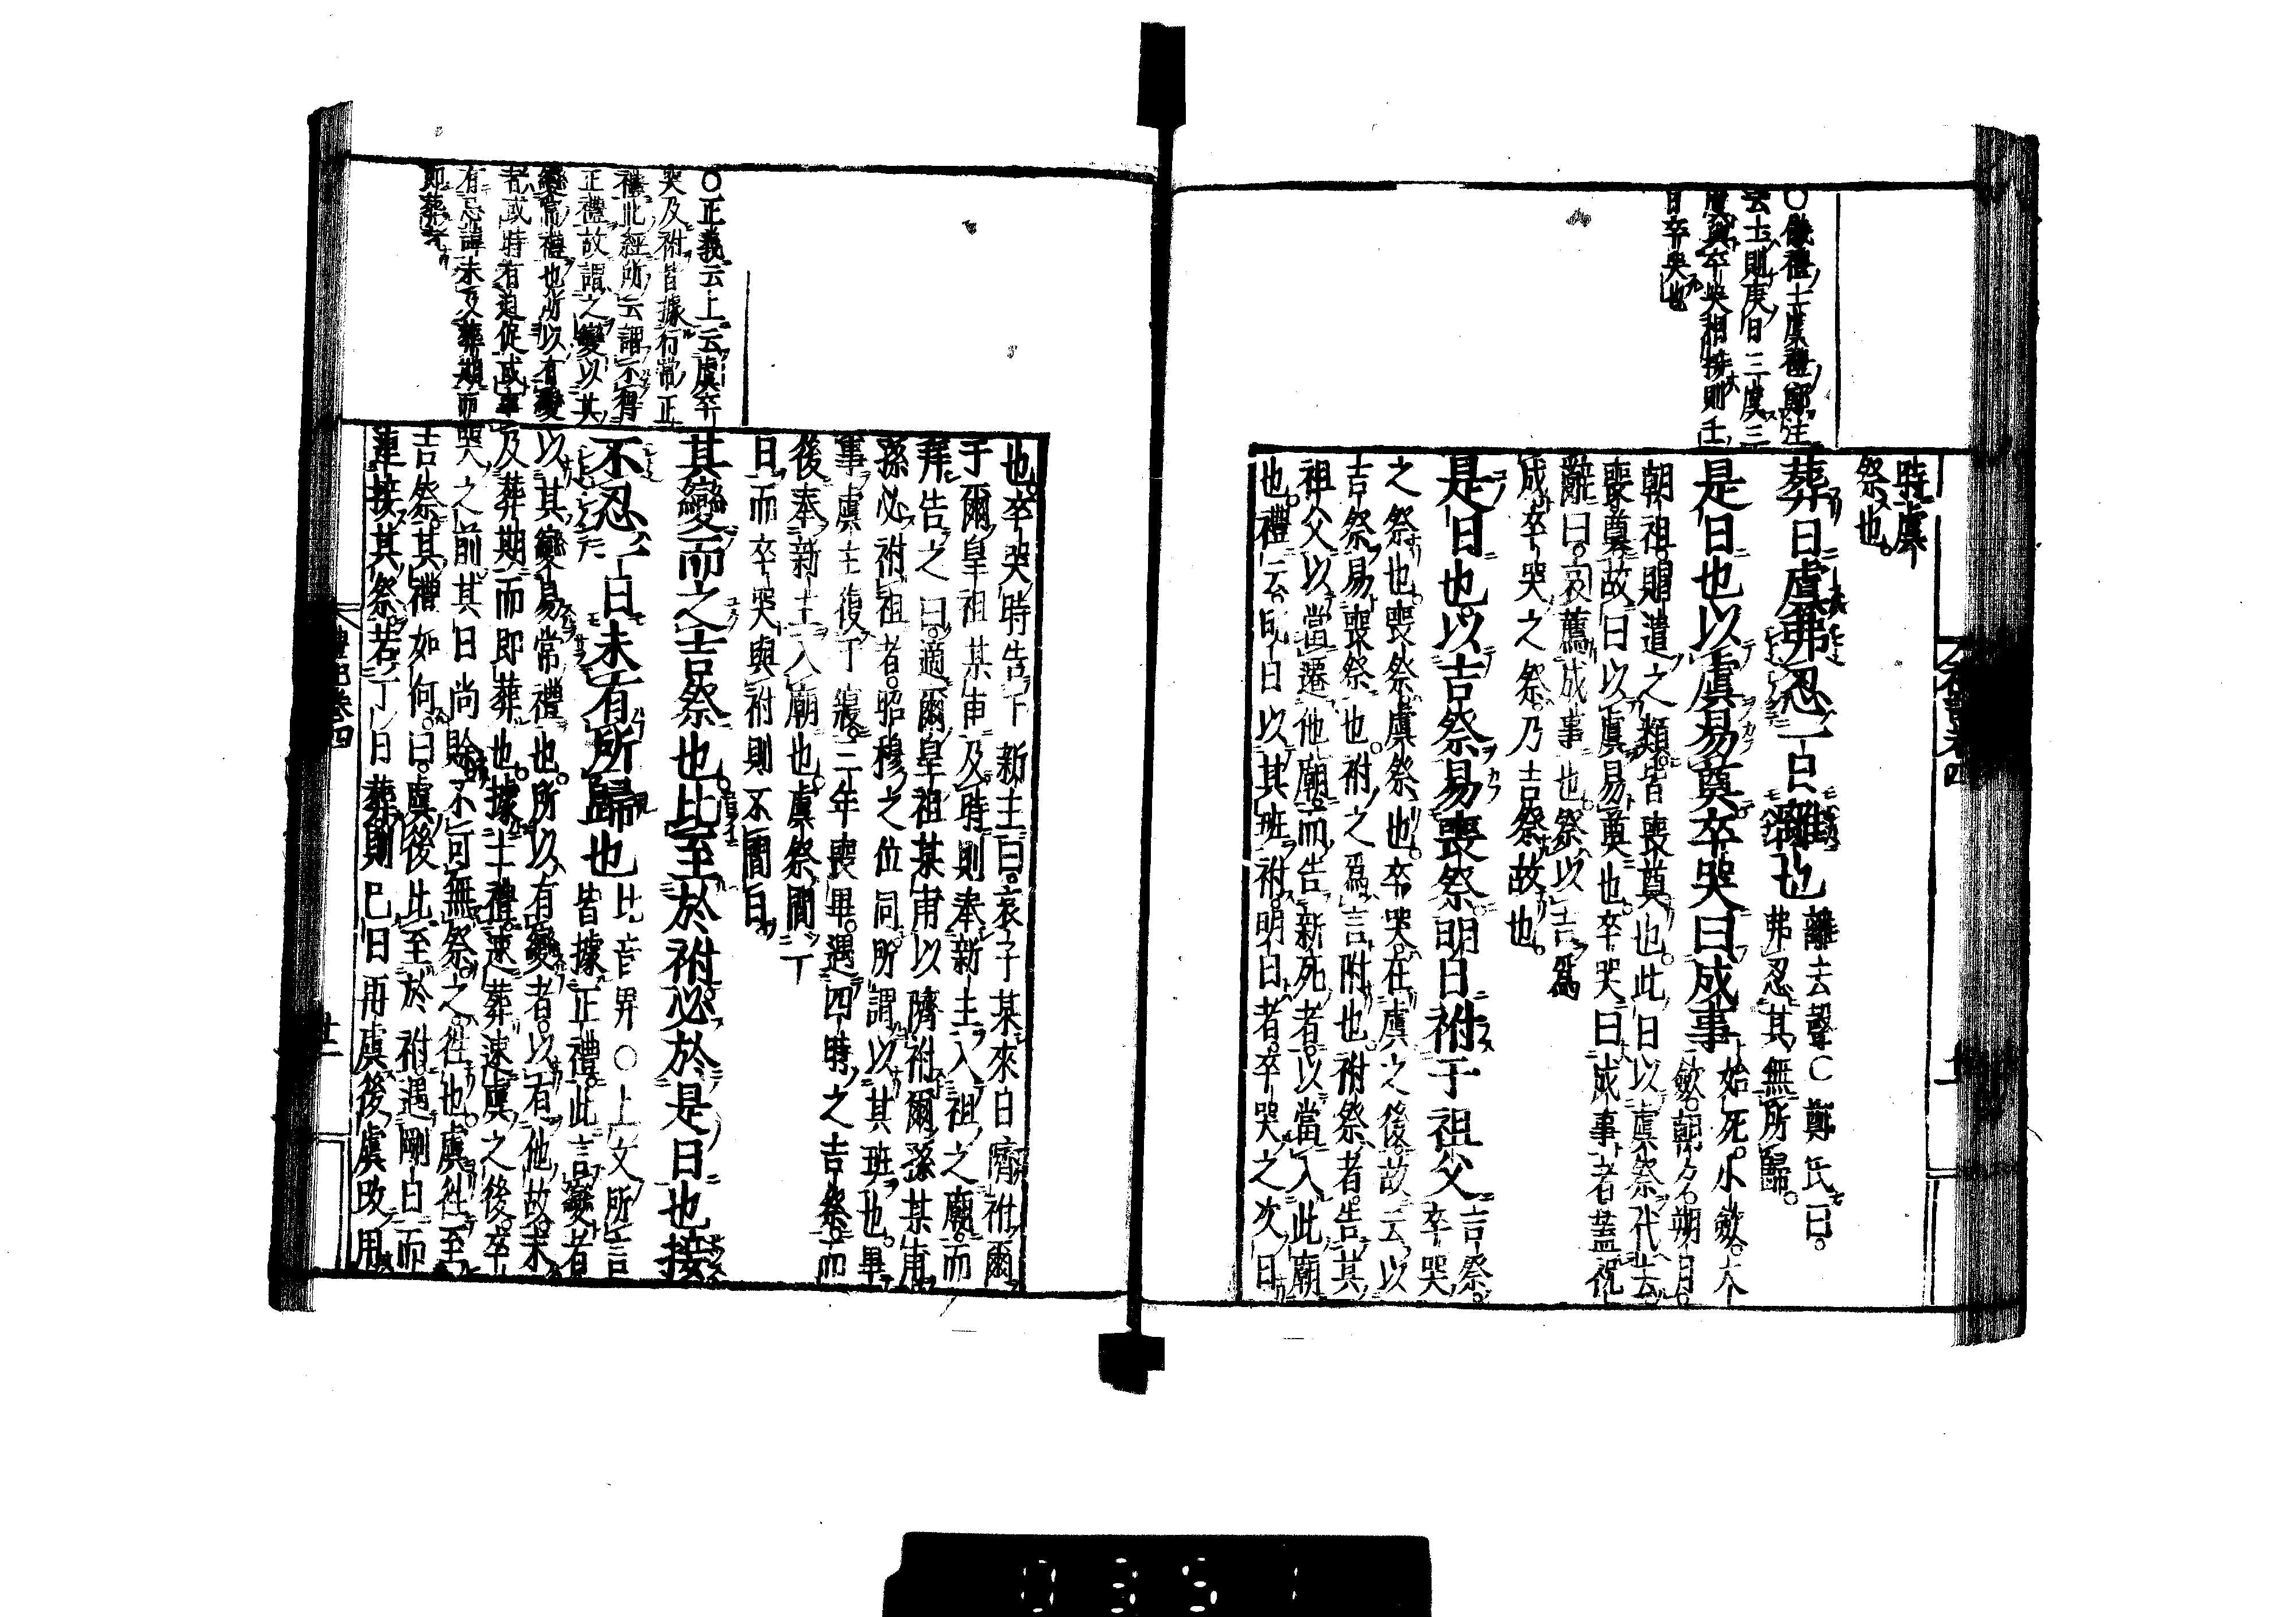 ○儀禮士虞禮鄭注
云士則庚日三虞三
虞與卒哭相接則壬
日卒哭也
時虞
祭也。
葬日虞弗忍一日離也
離去聲○鄭氏曰。
弗忍其無所歸。
是日也以虞易奠卒哭曰成事
始死。小斂。大
斂。朝夕。朔月。
朝祖。賵遣之類。皆喪奠也。此日以虞祭代去
喪奠。故曰以虞易奠也。卒哭曰成事者。蓋祝
辭曰。哀薦成事也。祭以吉爲
成。卒哭之祭。乃吉祭故也。
是日也。以吉祭易喪祭。明日祔于祖父
吉祭。
卒哭
之祭也。喪祭。虞祭也。卒哭。在虞之後。故云以
吉祭易喪祭也。祔之爲言附也。祔祭者。告其
祖父以當遷他廟。而告新死者。以當入此廟
也。禮云。明日以其班祔。明日者。卒哭之次日
也。卒哭時告于新主曰。哀子某。來日隮祔爾
于爾皇祖某甫。及時則奉新主入祖之廟。而
拜告之曰。適爾皇祖某甫。以隮祔爾孫某甫。
孫必祔祖者。昭穆之位同。所謂以其班也。畢
事。虞主復于寢。三年喪畢。遇四時之吉祭。而
後奉新主入廟也。虞祭間一
日。而卒哭與祔則不間日。
○正義云上云虞卒
哭及祔皆據行常正
禮此經所云謂不得
正禮故謂之變以其
變常禮也所以有變
者或時有迫促或事
有忌諱未及葬期而
即葬者
其變而之吉祭也。比至於祔。必於是日也接
不忍一日未有所歸也
比音畀○上文所言
皆據正禮。此言變者
以其變易常禮也。所以有變者。以有他故。未
及葬期而即葬也。據士禮。速葬速虞之後。卒
哭之前。其日尚賒。不可無祭。之往也。虞往至
吉祭。其禮如何。曰。虞後比至於祔。遇剛日而
連接其祭。若丁日葬。則己日再虞。後虞改用
禮記卷四